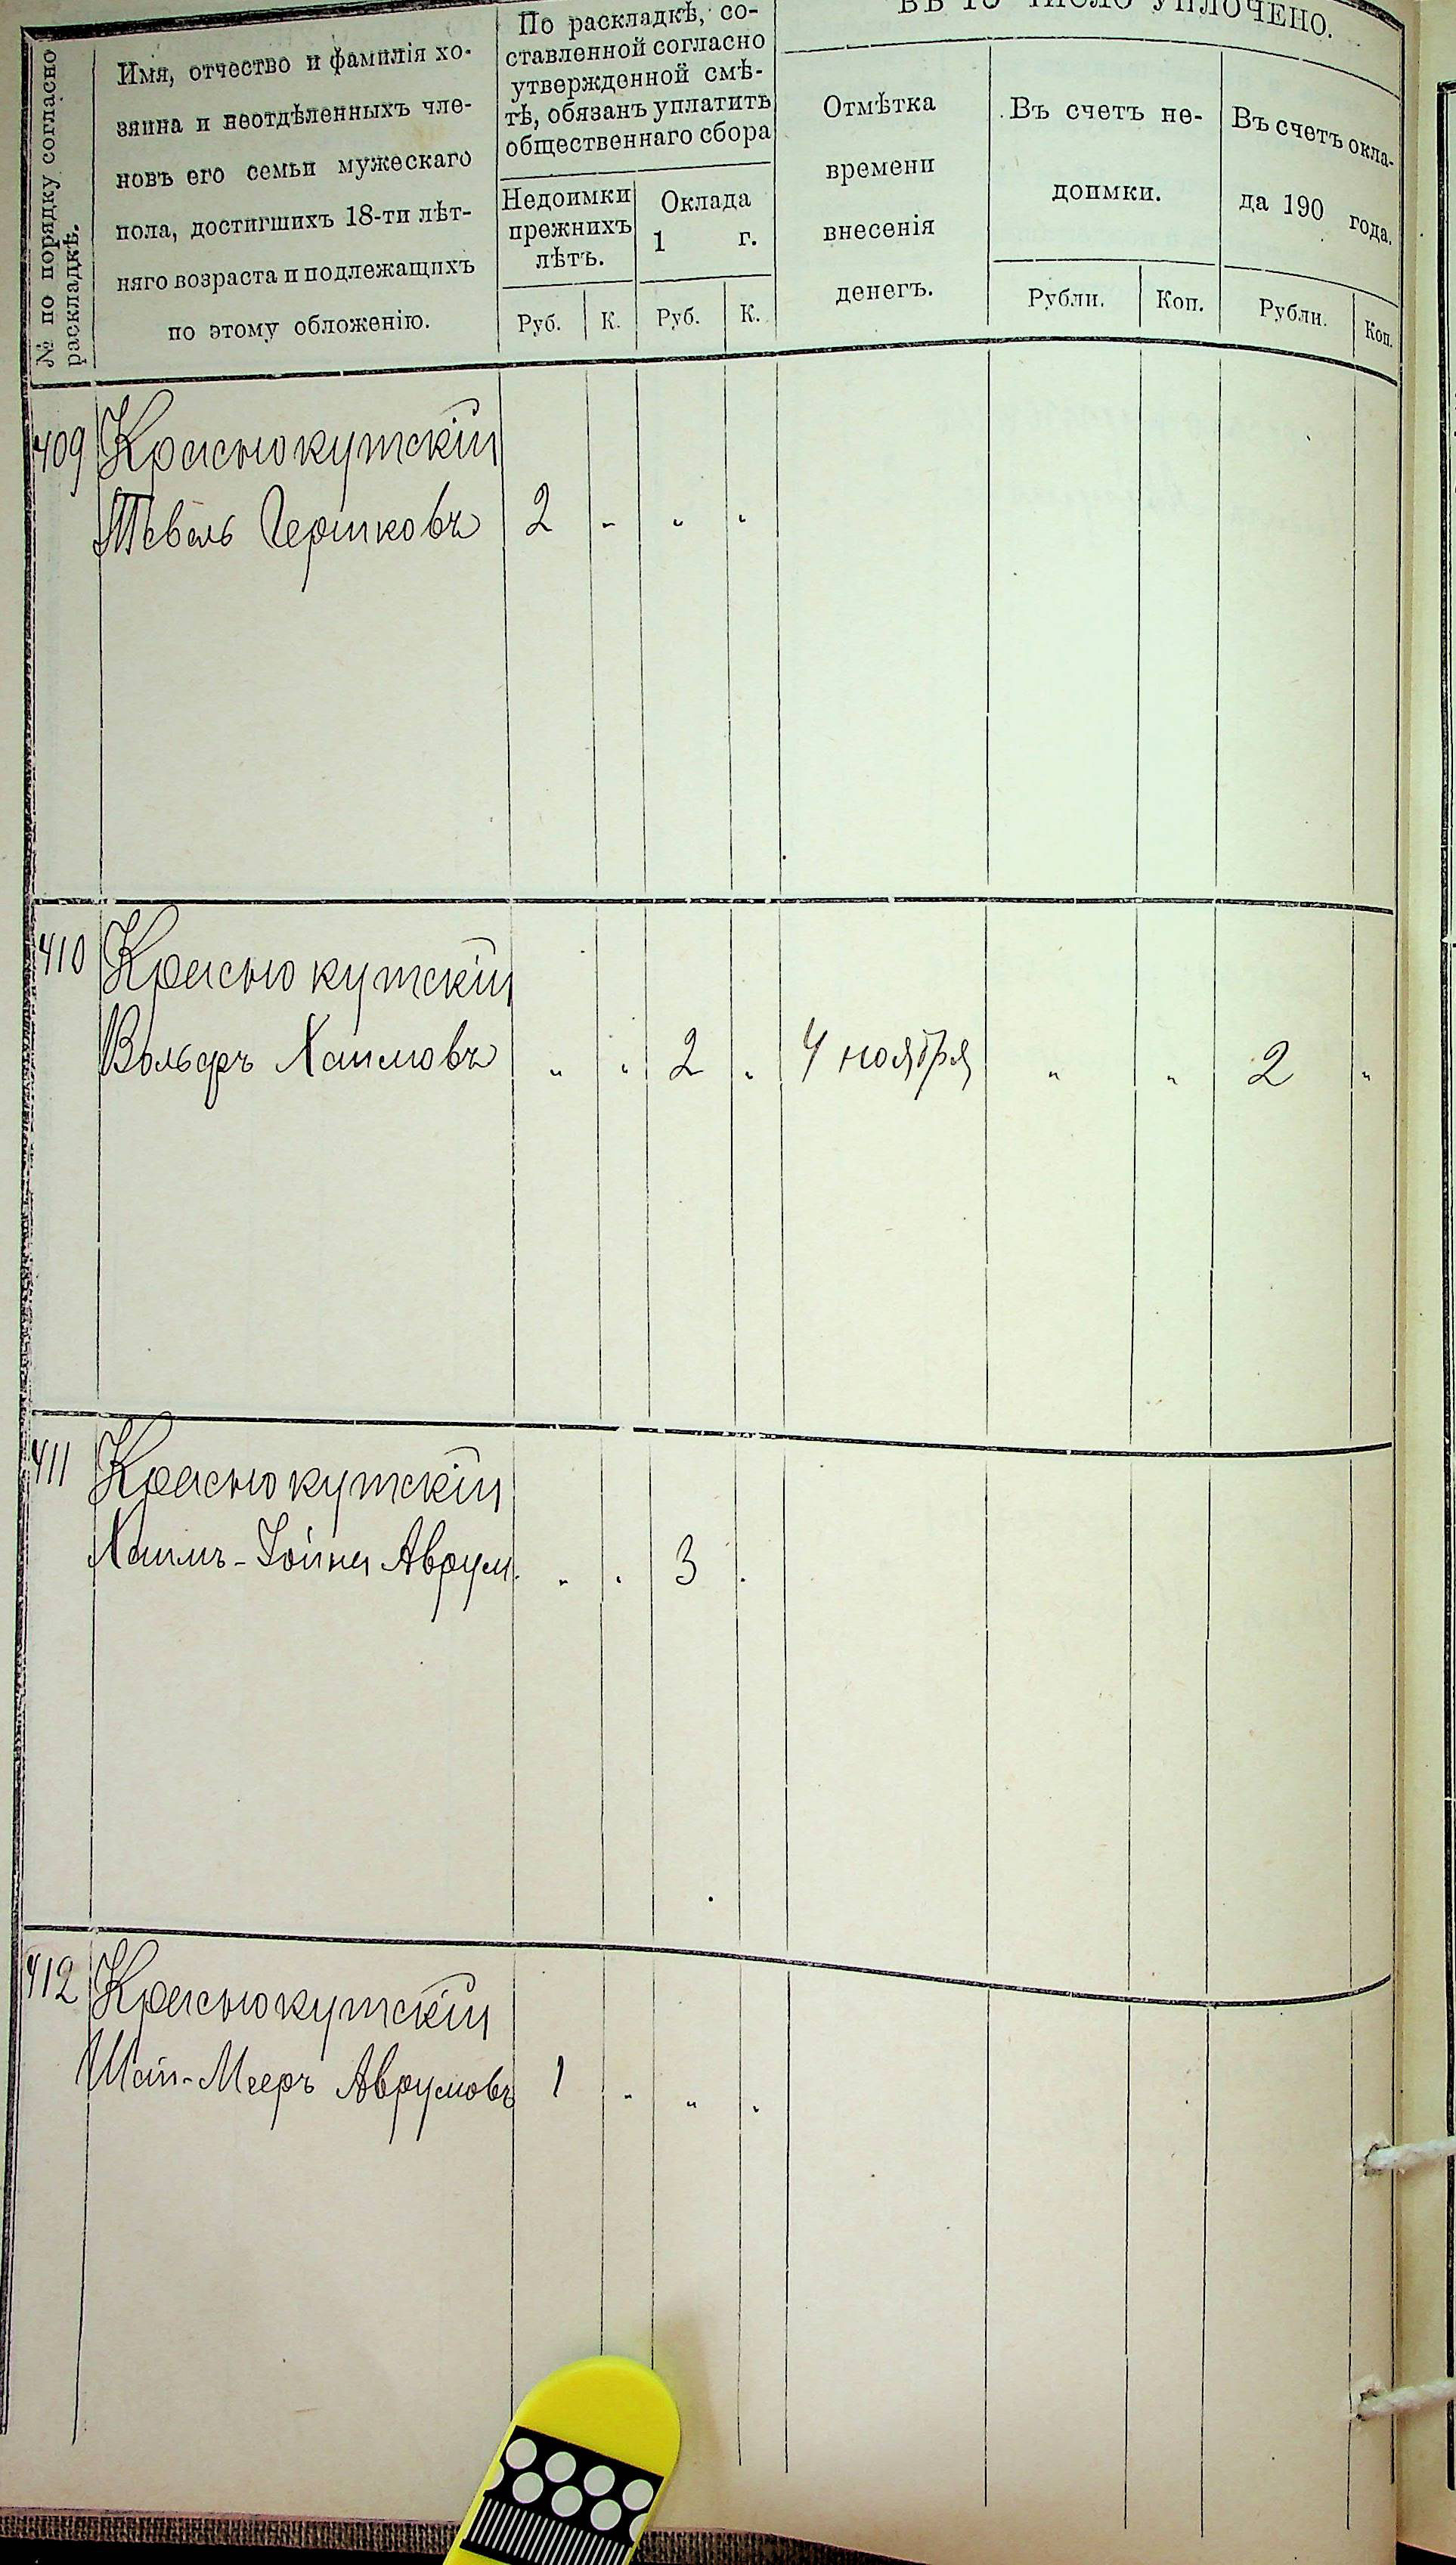 ВЪ ТО ЧИСЛО УПЛОЧЕНО.
№ по порядку согласно
раскладкѣ.
Имя, отчество и фамилія хо-
зяина и неотдѣленныхъ чле-
новъ его семьи мужескаго
пола, достигшихъ 18-ти лѣт-
няго возраста и подлежащихъ
по этому обложенію.
По раскладкѣ, со-
ставленной согласно
утвержденной смѣ-
тѣ, обязанъ уплатить
общественнаго сбора
Недоимки
прежнихъ
лѣтъ.
Оклада
1 г.
Руб. К. Руб. К.
Отмѣтка
времени
внесенія
денегъ.
Въ счетъ не-
доимки.
Рубли. Коп.
Въ счетъ окла-
да 190 года.
Рубли. Коп.
409 Краснокутскій
Тевель Гершковъ 2 - „ „
410 Краснокутскій
Вольфъ Хаимовъ „ „ 2 „ 4 ноября „ „ 2 „
411 Краснокутскій
Хаимъ-Іойна Аврум. „ „ 3 „
412 Краснокутскій
Шай-Мееръ Аврумовъ 1 - „ „